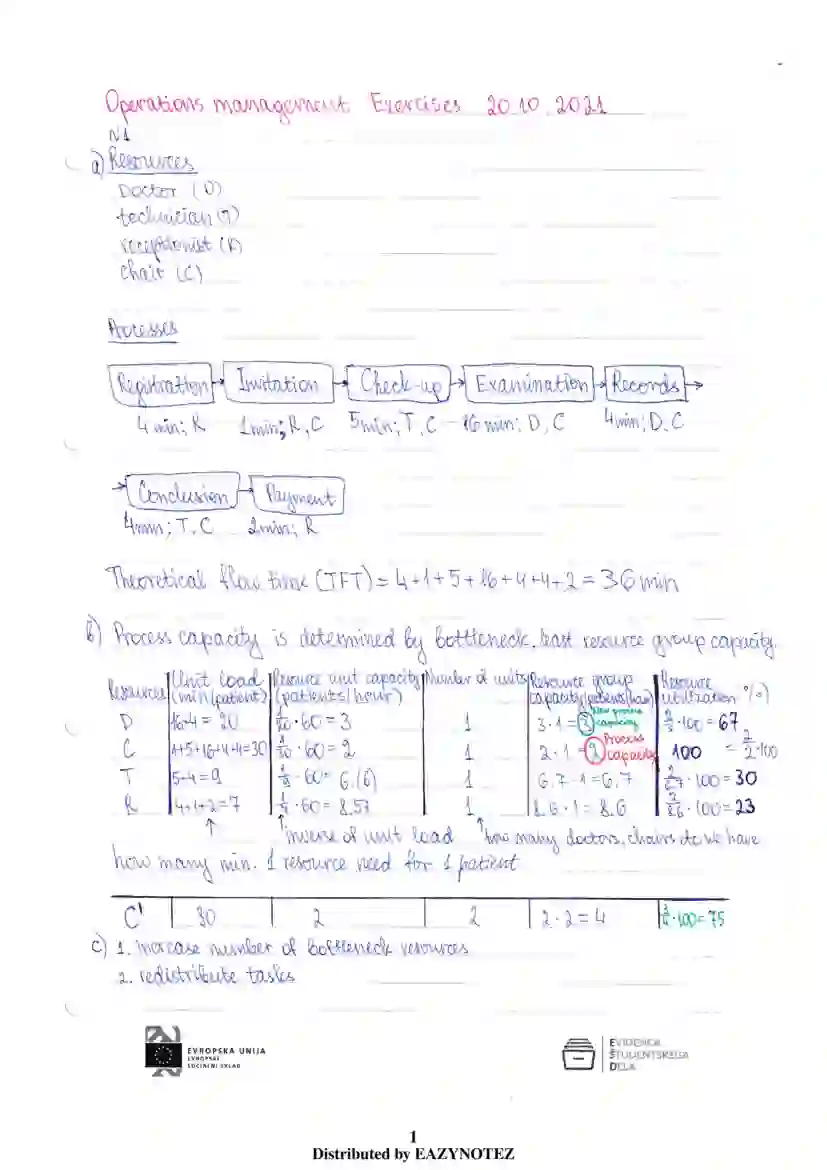 Operations management Exercises 20.10.2021
N1
a) Resources
Doctor (D)
technician (T)
receptionist (R)
chair (C)
Processes
Registration → Invitation → Check-up → Examination → Records →
4 min; R 1min; R, C 5min; T, C 16 min; D, C 4min; D, C
→ Conclusion → Payment
4min; T, C 2min; R
Theoretical flow time (TFT) = 4+1+5+16+4+4+2 = 36 min
b) Process capacity is determined by bottleneck, least resource group capacity.
Resources | Unit load (min/patient) | Resource unit capacity (patients/hour) | Number of units | Resource group capacity (patients/hour) | Resource utilization (%)
D | 16+4 = 20 | 1/20 · 60 = 3 | 1 | 3 · 1 = 3 New process capacity | 2/3 · 100 = 67
C | 1+5+16+4+4=30 | 1/30 · 60 = 2 | 1 | 2 · 1 = 2 Process capacity | 100 = 2/2 · 100
T | 5+4 = 9 | 1/9 · 60 = 6.(6) | 1 | 6.7 · 1 = 6.7 | 2/6.7 · 100 = 30
R | 4+1+2 = 7 | 1/7 · 60 = 8.57 | 1 | 8.6 · 1 = 8.6 | 2/8.6 · 100 = 23
↑ ↑ inverse of unit load ↑ how many doctors, chairs etc we have
how many min. 1 resource need for 1 patient
C' | 30 | 2 | 2 | 2 · 2 = 4 | 3/4 · 100 = 75
c) 1. increase number of bottleneck resources
2. redistribute tasks
EVROPSKA UNIJA
EVROPSKI
SOCIALNI SKLAD
EVIDENCA
ŠTUDENTSKEGA
DELA
1
Distributed by EAZYNOTEZ